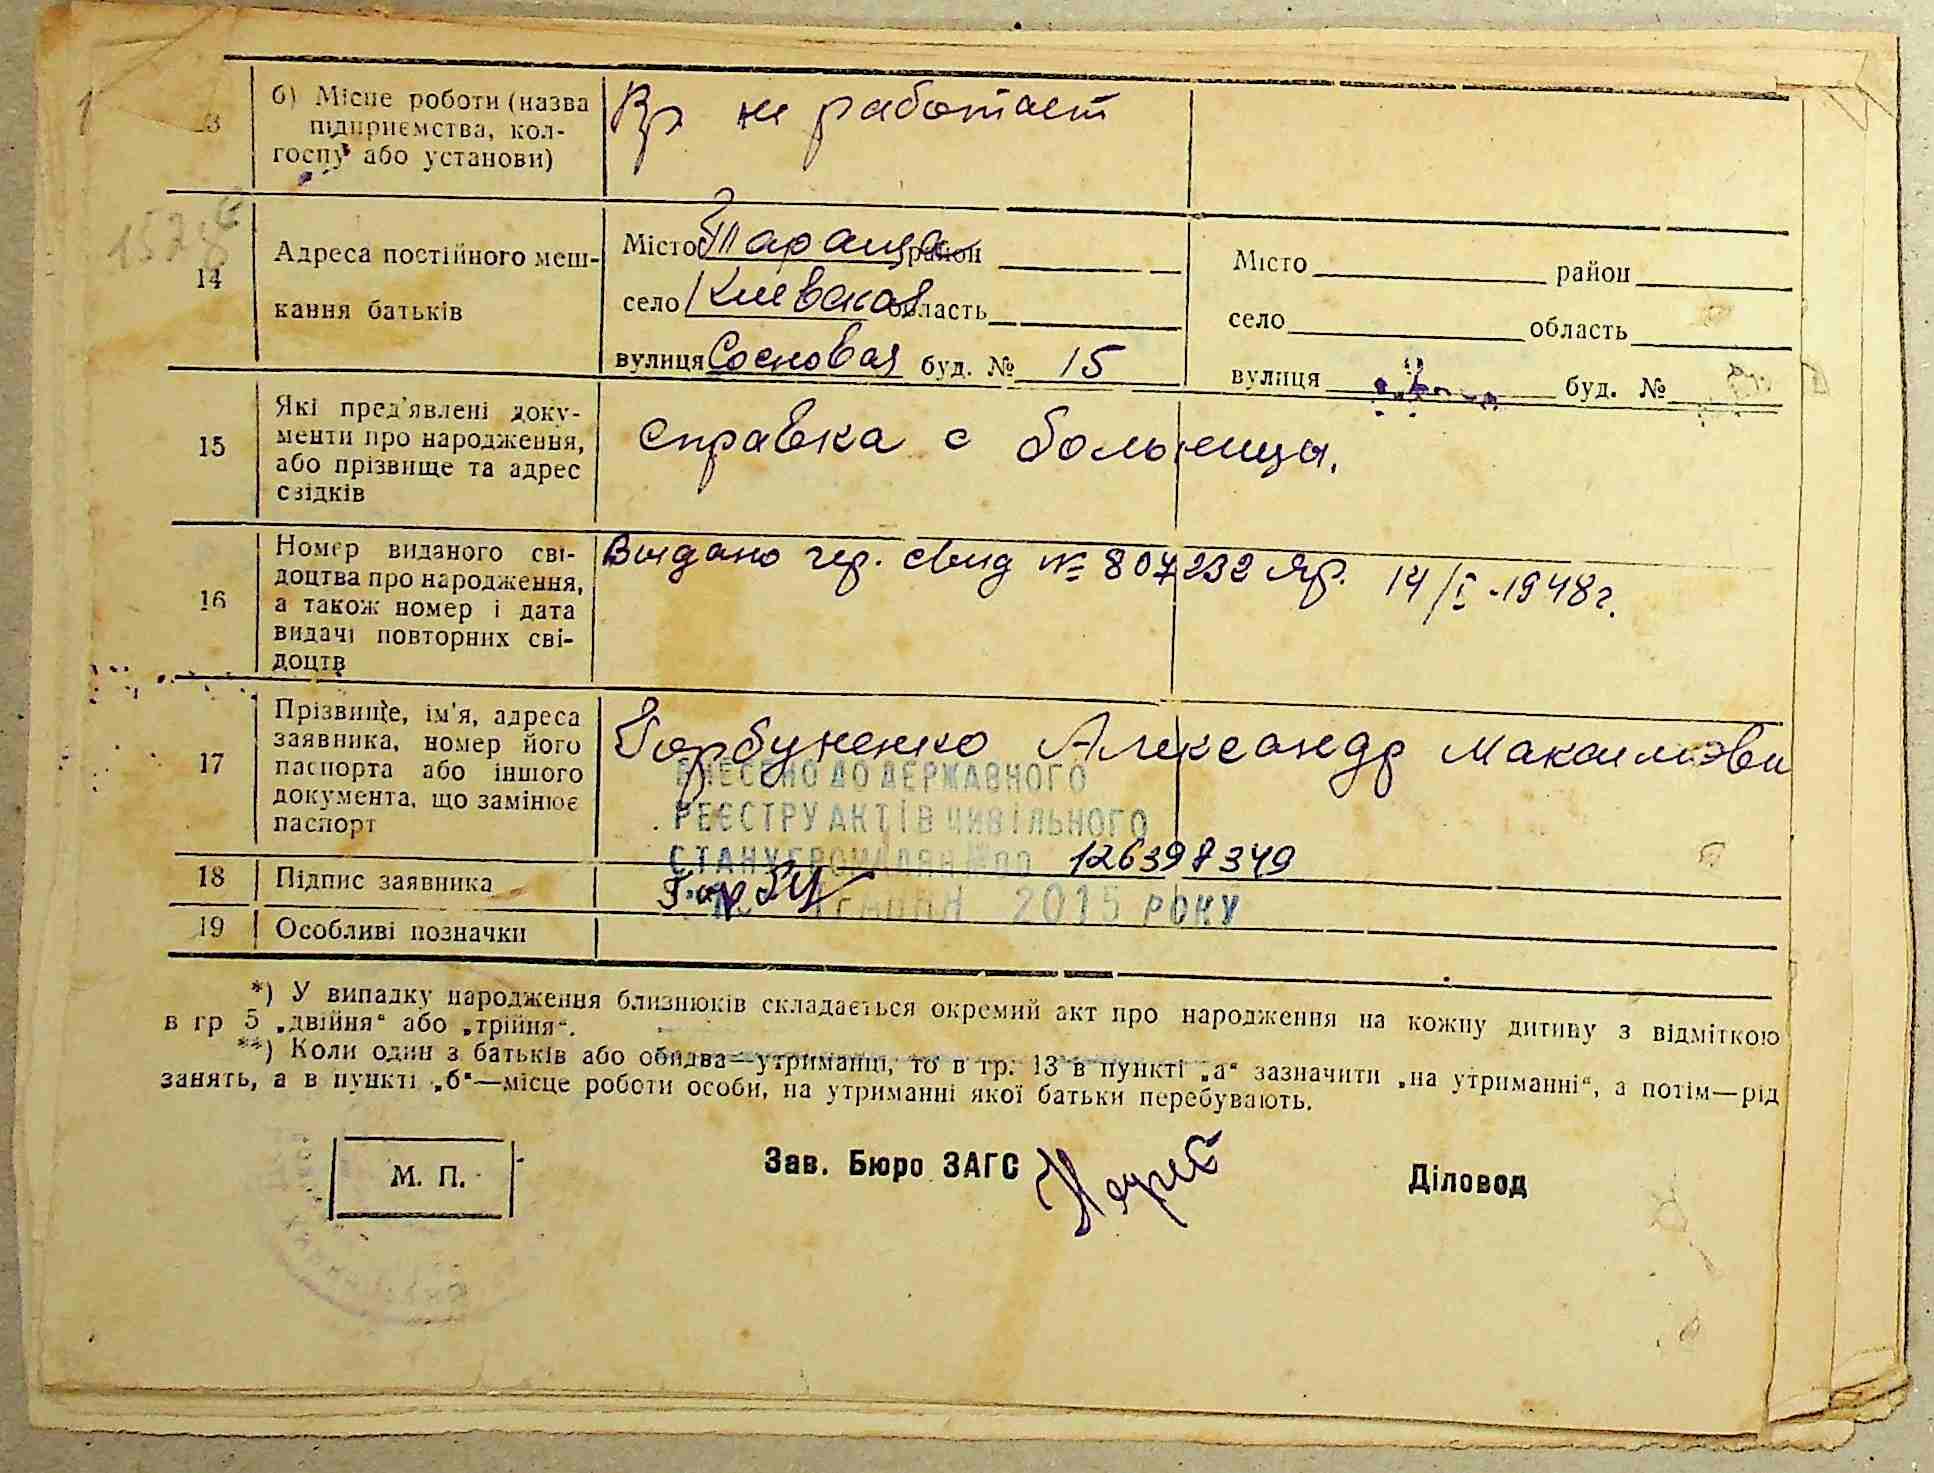 б) Місце роботи (назва
підприємства, кол-
госпу або установи)
Вр не работает
14
Адреса постійного меш-
кання батьків
Місто Тараща район
село Киевская область
вулиця Сосновая буд. № 15
Місто район
село область
вулиця буд. №
15
Які пред'явлені доку-
менти про народження,
або прізвище та адрес
свідків
справка с больницы.
16
Номер виданого сві-
доцтва про народження,
а також номер і дата
видачі повторних сві-
доцтв
Выдано гер. свид № 807232 14/I-1948г.
17
Прізвище, ім'я, адреса
заявника, номер його
паспорта або іншого
документа, що замінює
паспорт
Горбуненко Александр Максимови
ВНЕСЕНО ДО ДЕРЖАВНОГО
РЕЄСТРУ АКТІВ ЦИВІЛЬНОГО
СТАНУ ГРОМАДЯН 126397349
ТРАВНЯ 2015 РОКУ
18 Підпис заявника
19 Особливі позначки
*) У випадку народження близнюків складається окремий акт про народження на кожну дитину з відміткою
в гр 5 „двійня“ або „трійня“.
**) Коли один з батьків або обидва—утриманці, то в гр. 13 в пункті „а“ зазначити „на утриманні“, а потім—рід
занять, а в пункті „б“—місце роботи особи, на утриманні якої батьки перебувають.
М. П.
Зав. Бюро ЗАГС
Діловод